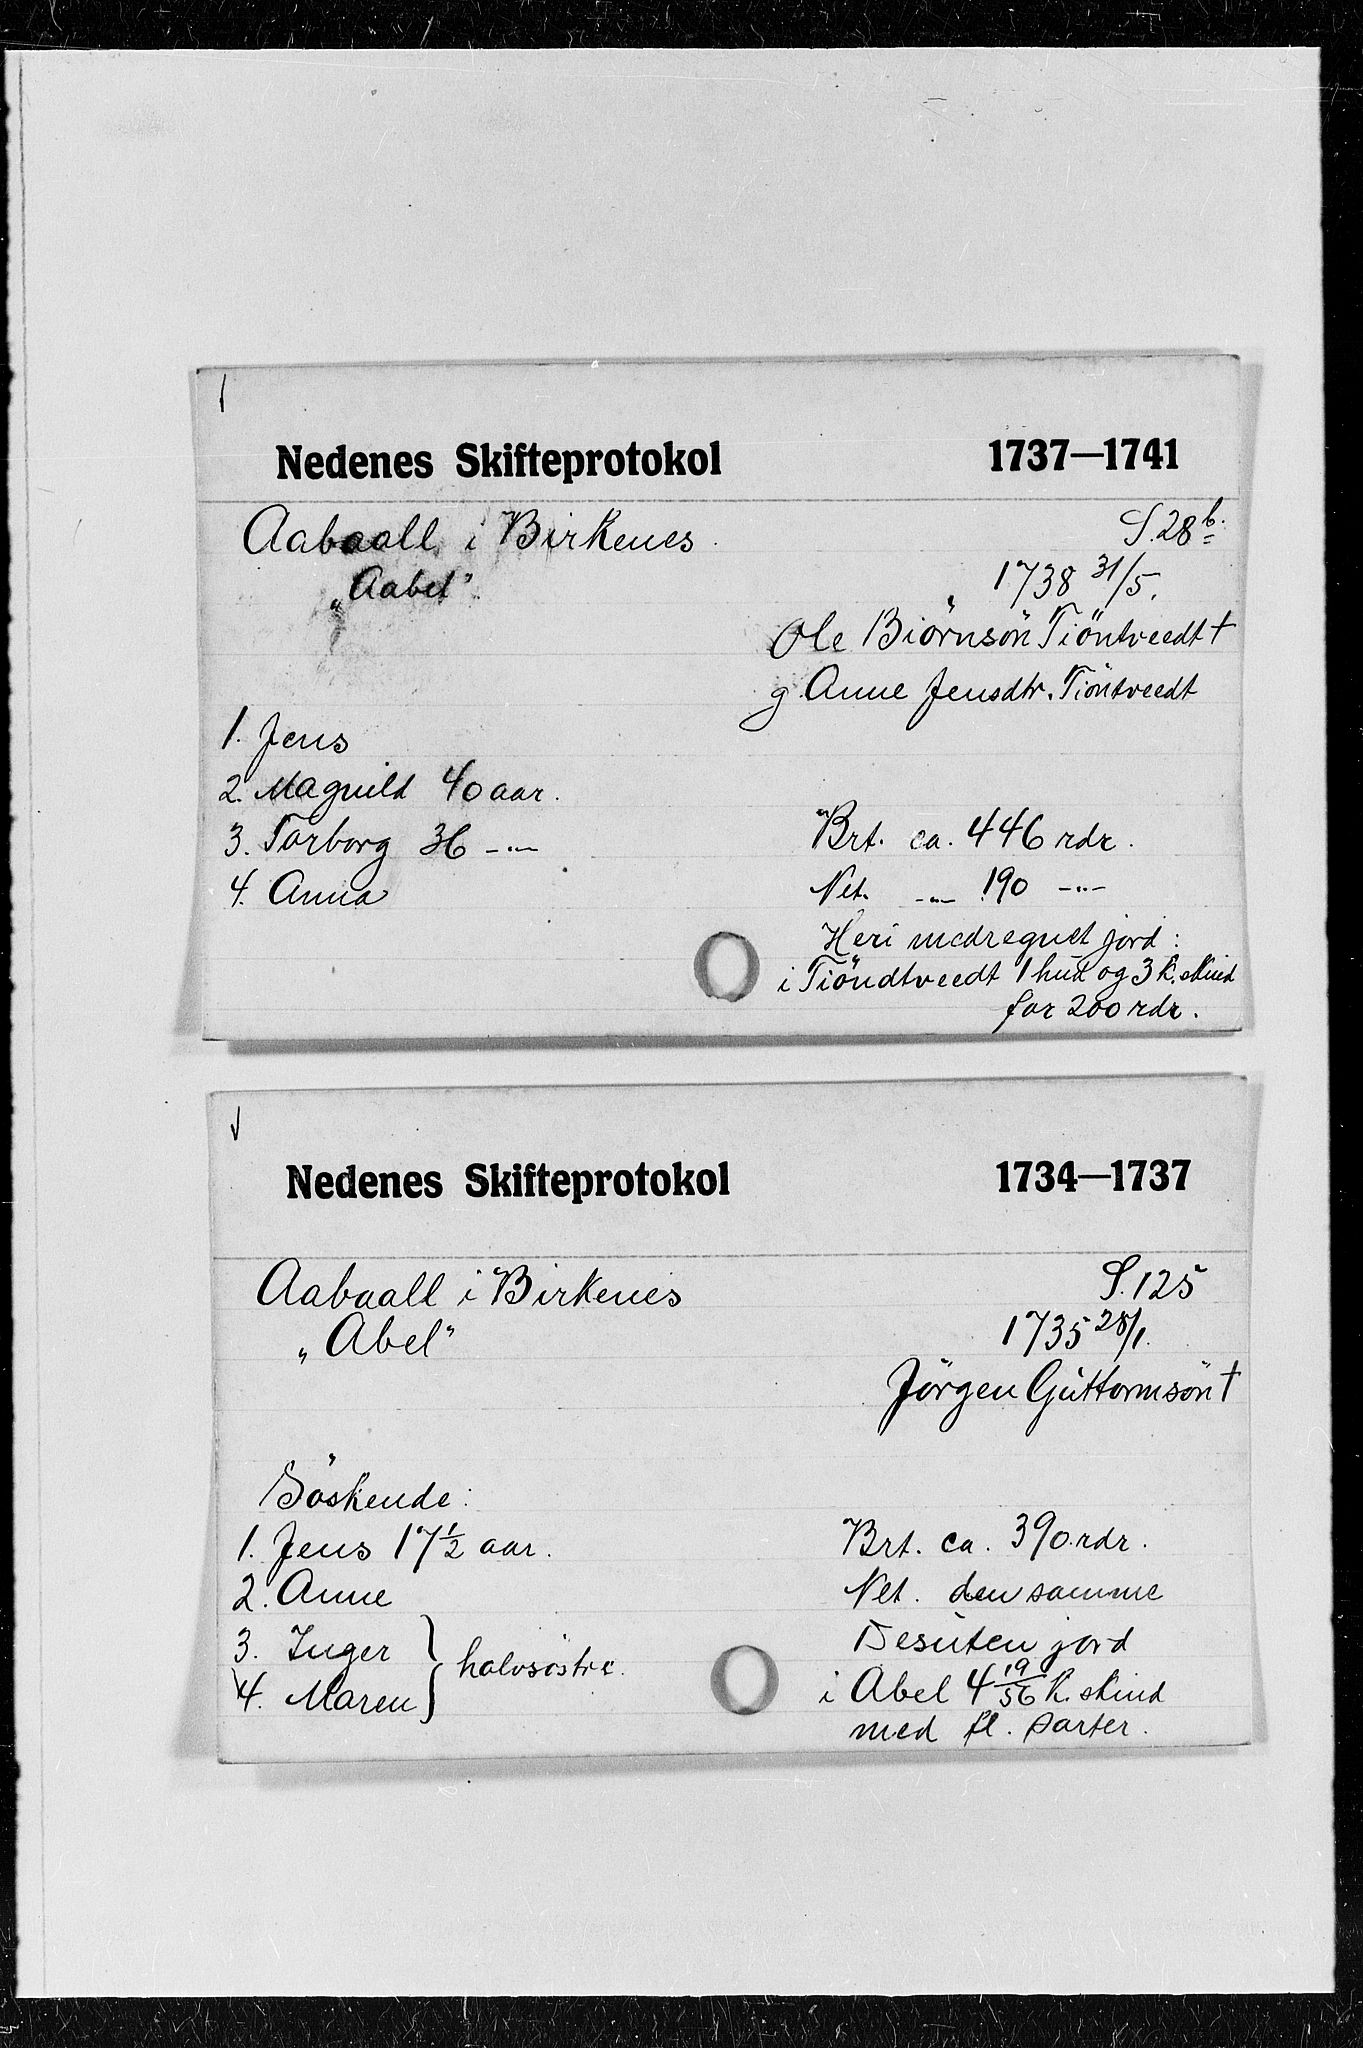 Nedenes Skifteprotokol 1737—1741
Aabaall i Birkenes. S. 28 b.
„Aabel" 1738 31/5.
Ole Biörnsön Tiöntveedt †
g. Anne Jensdtr. Tiöntveedt
1. Jens
2. Magnild 40 aar.
3. Torborg 36 -"- Brt. ca. 446 rdr.
4. Anna Net. -"- 190 -"-
Heri medregnet jord:
i Tiöndtveedt 1 hud og 3 k. skind
for 200 rdr.
Nedenes Skifteprotokol 1734—1737
Aabaall i Birkenes S. 125
„Abel" 1735 28/1.
Jörgen Guttormsön †
Söskende:
1. Jens 17 1/2 aar. Brt. ca. 390 rdr.
2. Anne Net. den samme
3. Inger } halvsöstre. Desuten jord
4. Maren i Abel 4 19/56 k. skind
med fl. parter.